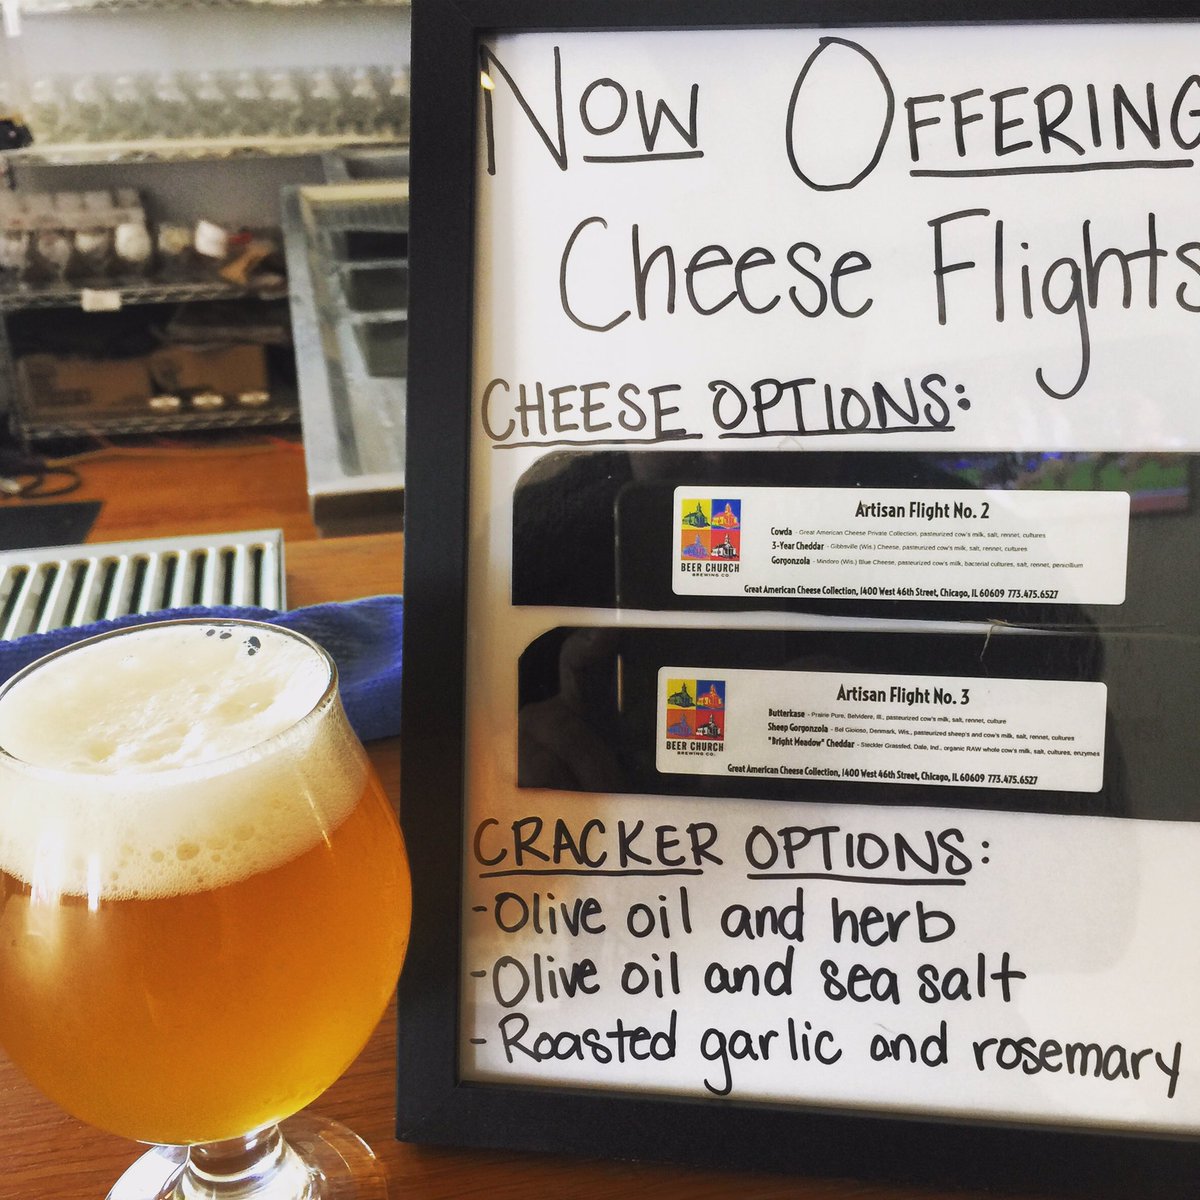 Now Offering
Cheese Flights
CHEESE OPTIONS:
Artisan Flight No. 2
Cowda - Great American Cheese Private Collection, pasteurized cow's milk, salt, rennet, cultures
3-Year Cheddar - Gibbsville (Wis.) Cheese, pasteurized cow's milk, salt, rennet, cultures
Gorgonzola - Mindoro (Wis.) Blue Cheese, pasteurized cow's milk, bacterial cultures, salt, rennet, penicillium
BEER CHURCH
BREWING CO.
Great American Cheese Collection, 1400 West 46th Street, Chicago, IL 60609 773.475.6527
Artisan Flight No. 3
Butterkase - Prairie Pure, Belvidere, Ill., pasteurized cow's milk, salt, rennet, culture
Sheep Gorgonzola - Bel Gioioso, Denmark, Wis., pasteurized sheep's and cow's milk, salt, rennet, cultures
"Bright Meadow" Cheddar - Steckler Grassfed, Dale, Ind., organic RAW whole cow's milk, salt, cultures, enzymes
BEER CHURCH
BREWING CO.
Great American Cheese Collection, 1400 West 46th Street, Chicago, IL 60609 773.475.6527
CRACKER OPTIONS:
- Olive oil and herb
- Olive oil and sea salt
- Roasted garlic and rosemary